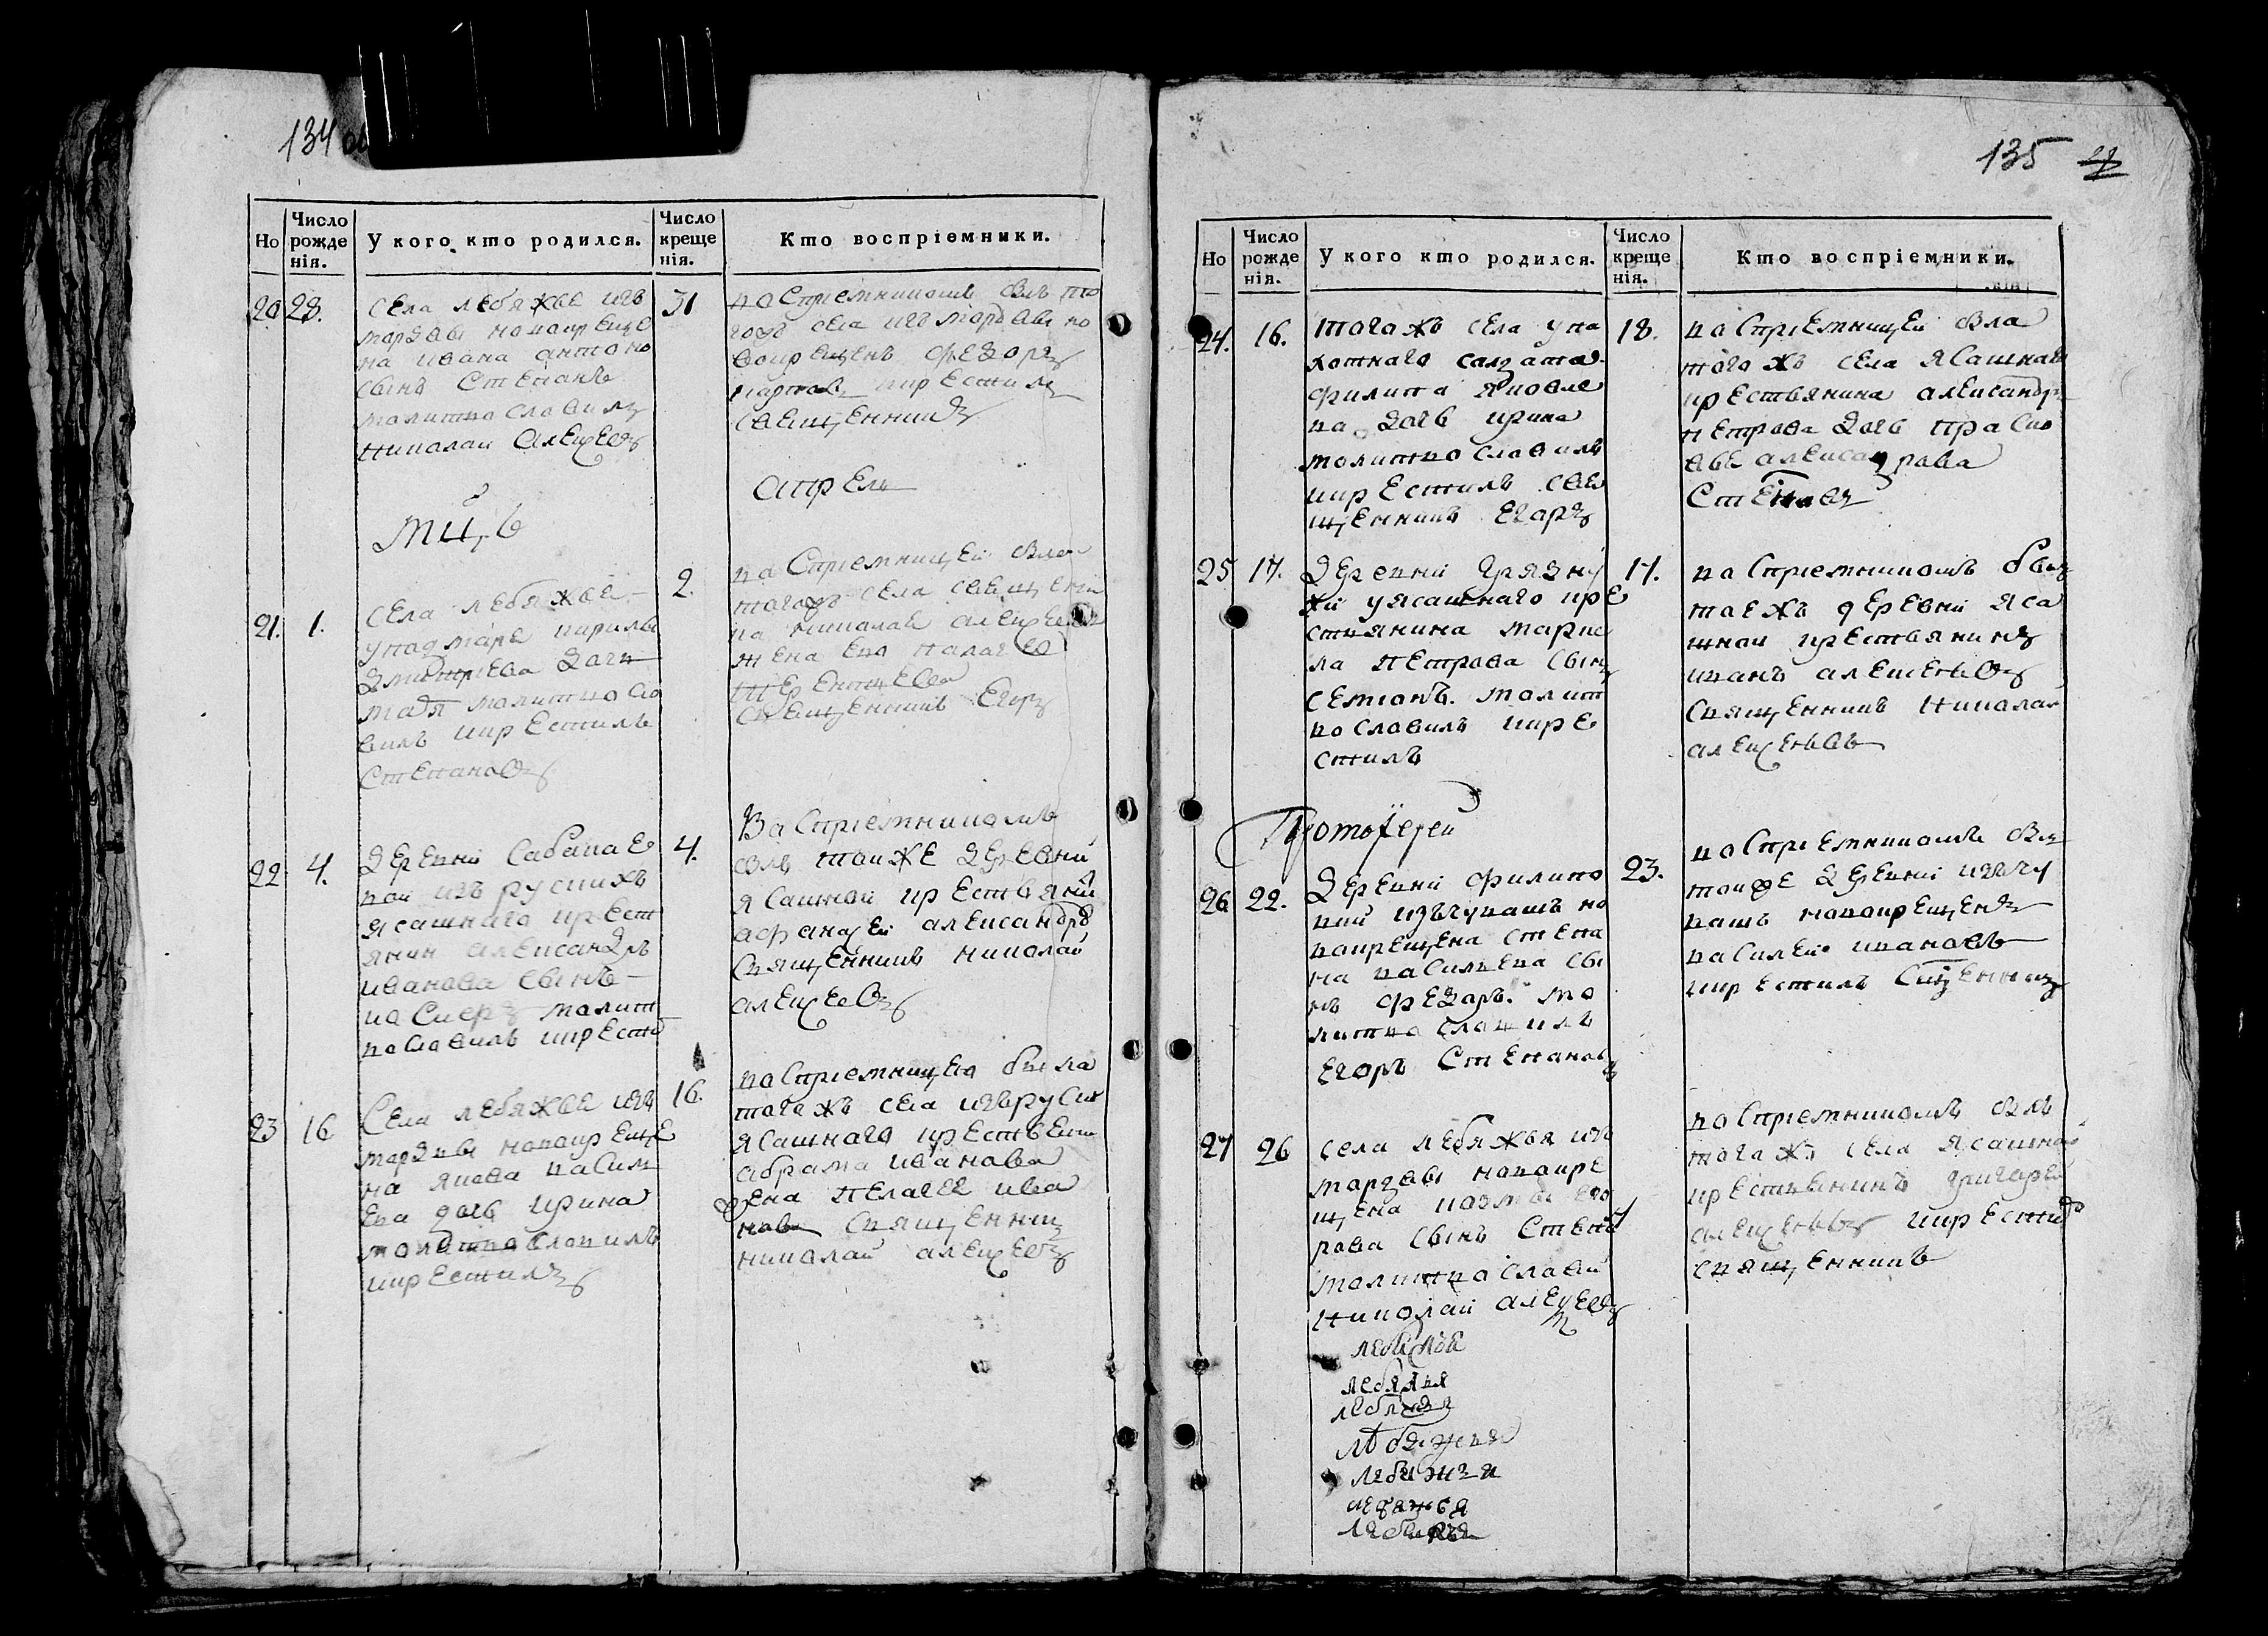 134 об
Но
Число рожде нія.
У кого кто родился.
Число креще нія.
Кто воспріемники.
20 28.
села лебяжье изъ
мордвы новокреще
на ивана антоно
сынъ степанъ
молитвословилъ
николаи алеѯеевъ
31
воспріемникомъ былъ то
гожъ села изъ мордвы но
вокрещенъ федоръ
крестилъ
священникъ
апрель
мцъ
21. 1.
села лебяжье
кирилы
дмитриева дочь
молитвосло
вилъ крестилъ
степановъ
2.
воспріемницей была
тогожъ села священи
ка николая алеѯеева
жена ево палагея
терентьева
священникъ егоръ
22 4.
деревни сабакае
вой изъ руских
ясашного крест
янин александръ
иванова сынъ
молит
вословилъ крести
4.
Воспріемникомъ
былъ тойже деревни
ясашной крестьяни
афанасеи александр
священникъ николай
алеѯеевъ
23 16
Села лебяжье изъ
мордвы новокреще
на якова васил
ева дочь ирина
молитвословилъ
крестилъ
16.
воспріемницею была
тогожъ села изъ руских
ясашного крестьени
абрама иванова
жена пелагея ива
нова священник
николай алеѯеевъ
135 22
Но
Число рожде нія.
У кого кто родился.
Число креще нія.
Кто воспріемники.
24. 16.
тогожъ села у па
хотнаго салдата
филипа яковле
ва дочь ирина
молитвословилъ
крестилъ свя
щенникъ егоръ
18.
воспріемницей была
тогожъ села ясашнаго
крестьянина александр
петрова дочь праско
вье александрава
Степановъ
25 17.
деревни грязну
хи у ясашнаго кре
стьянина
ла петрова сынъ
семионъ. молит
вословилъ кре
стилъ
17.
воспріемникомъ былъ
тоежъ деревни яса
шнои крестьянинъ
иванъ алексеевъ
священникъ николай
алеѯеевъ
Протоіерей
26 22.
деревни филипо
вки изъ чувашъ но
вокрещена степа
на васильева сы
нъ федаръ. мо
литвословилъ
егоръ степановъ
23.
воспріемникомъ былъ
тоиже деревни изъ чу
вашъ новокрещенъ
василеи ивановъ
крестилъ священникъ
27 26
села лебяжья изъ
мордвы новокре
щена козмы его
рова сынъ степа
молитвослови
николай алеѯеевъ
воспріемникомъ былъ
тогожъ села ясашной
крестьянинъ григорей
алеѯеевъ крестилъ
священникъ
лебяжья